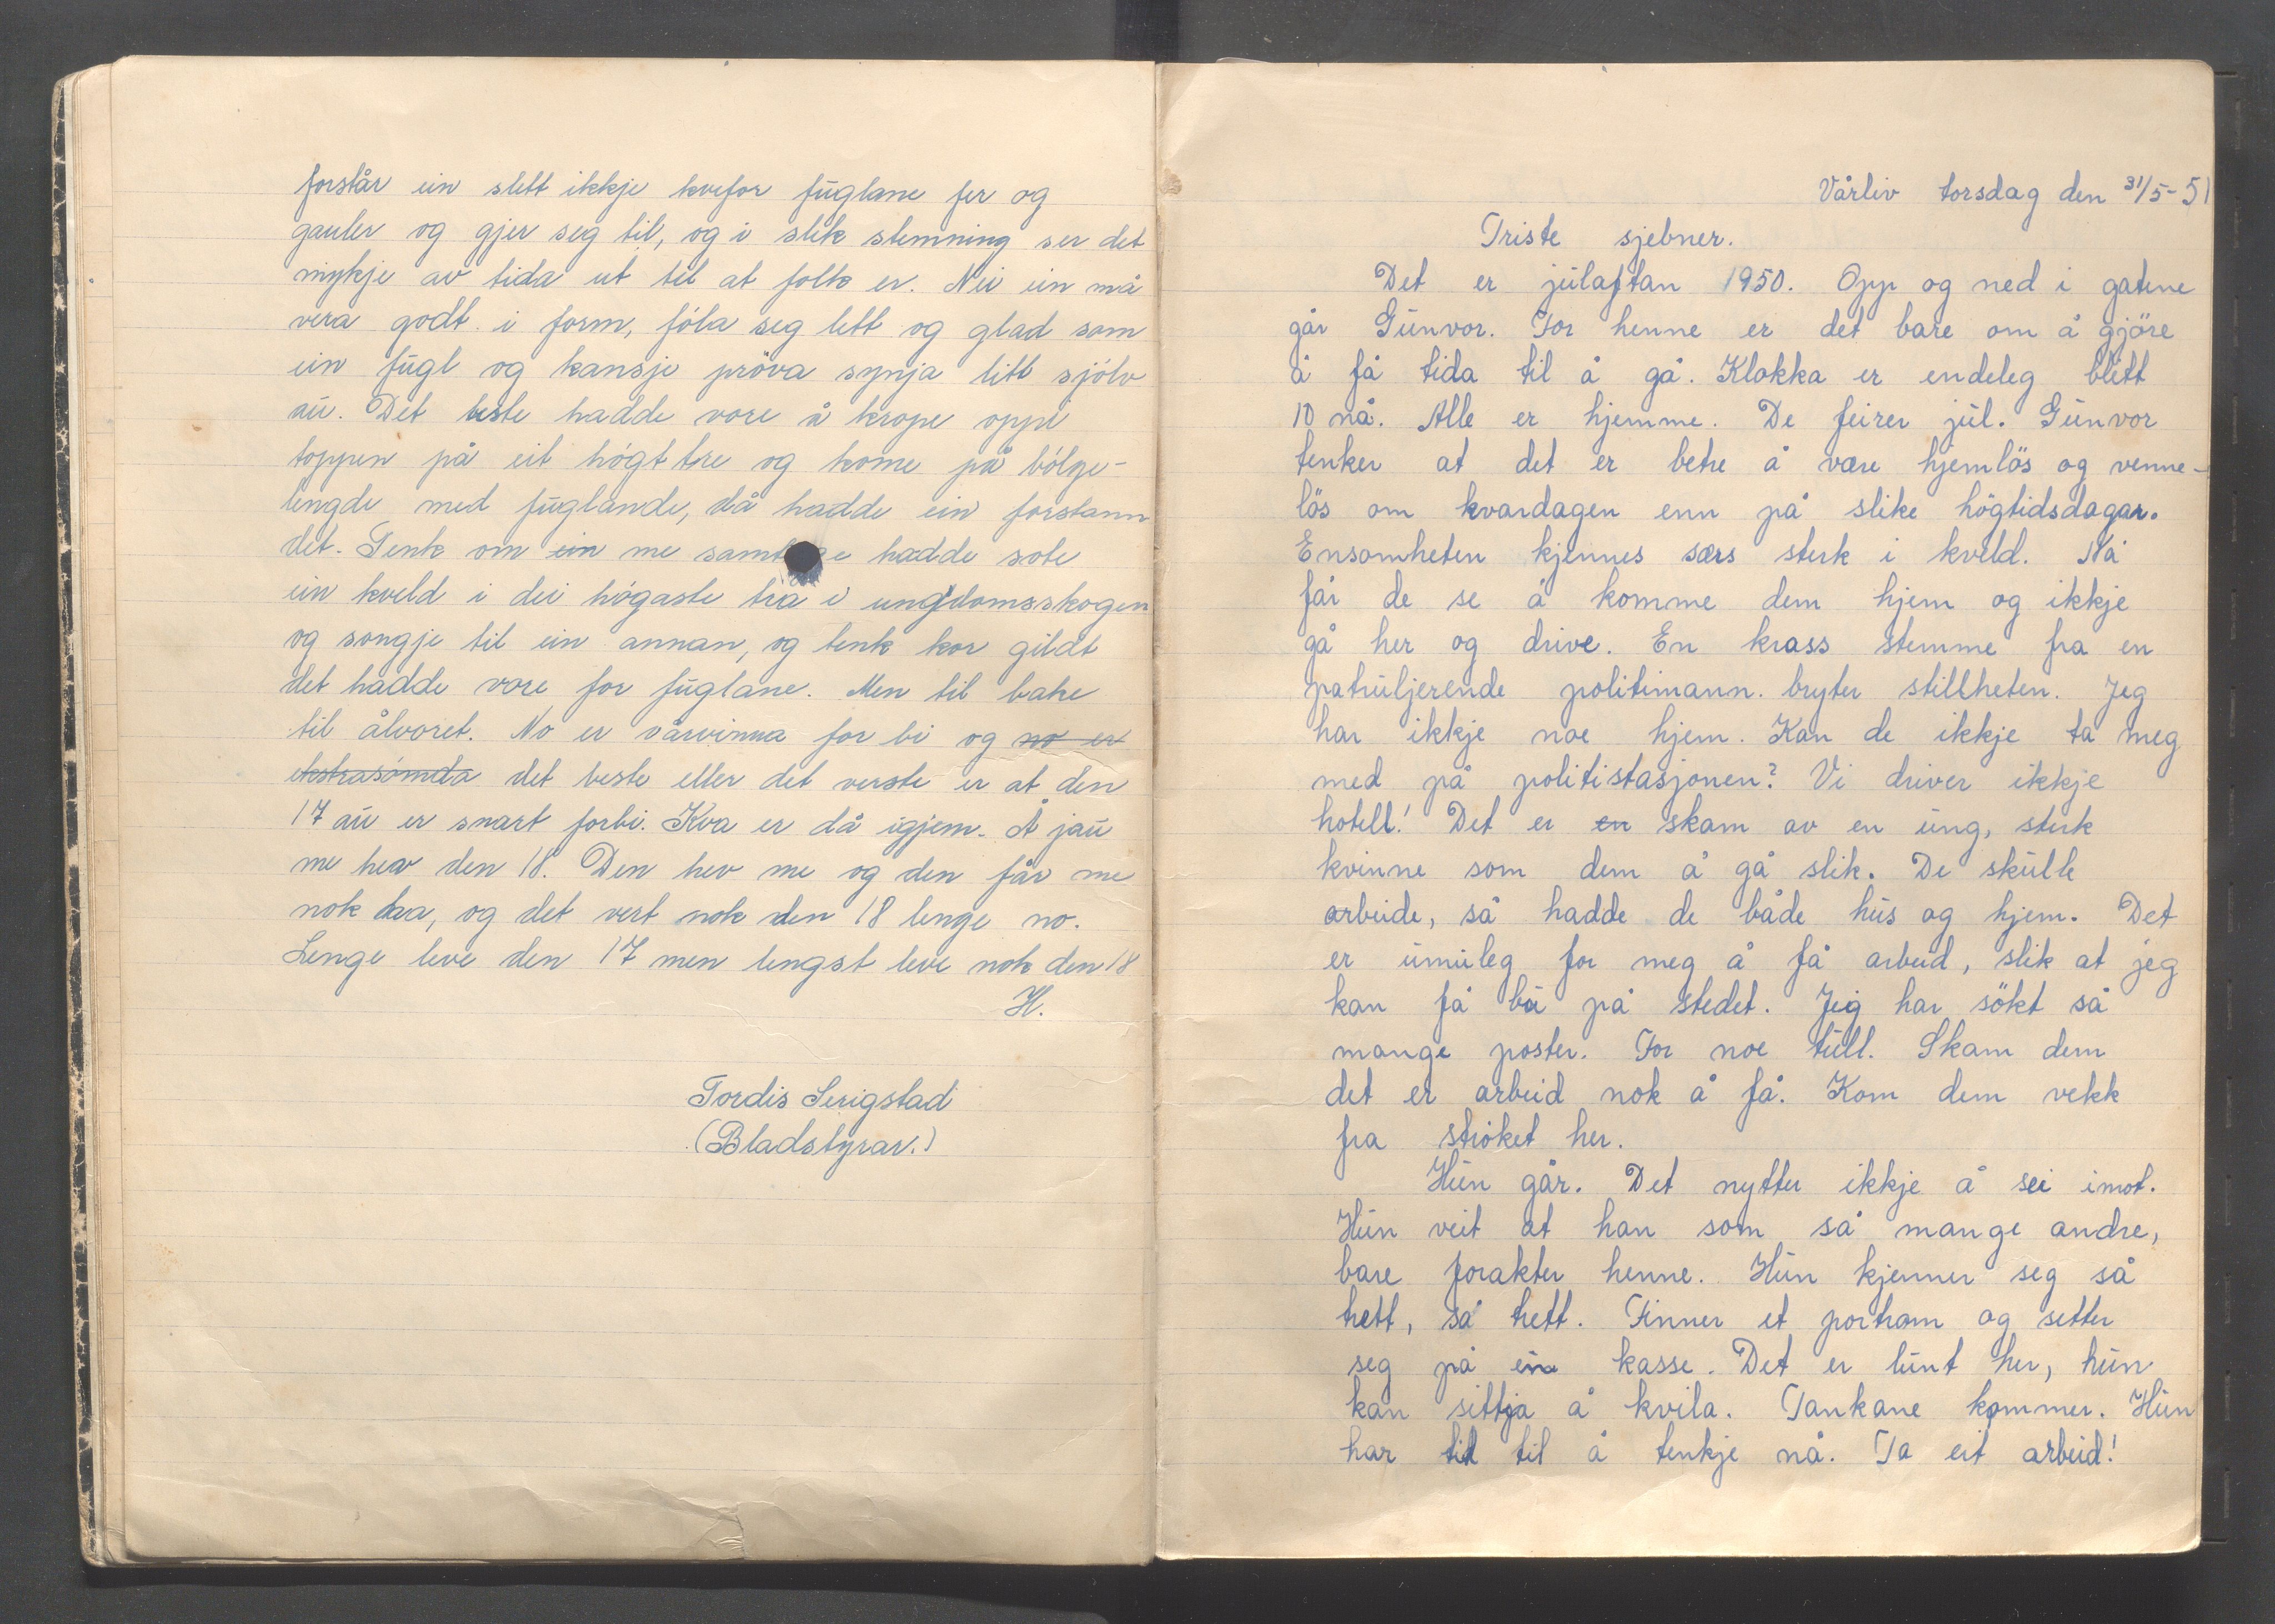 forstår ein slett ikkje kvefor fuglane fer og
gauler og gjer seg til, og i slik stemning ser det
mykje av tida ut til at folk er. Nei ein må
vera godt i form, föla seg lett og glad som
ein fugl og kansje pröva synja litt sjölv
au. Det beste hadde vore å krope oppi
toppen på eit högt tre og kome på bölge-
lengde med fuglande, då hadde ein forstann
det. Tenk om ein me hadde sote
ein kveld i dei högaste trea i ungdomsskogen
og songje til ein annan, og tenk kor gildt
det hadde vore for fuglane. Men til bake
til ålvoret. No er vårvinna for bi og no er
ekstrasömda det beste eller det verste er at den
17 au er snart forbi. Kva er då igjem. Å jau
me hev den 18. Den hev me og den får me
nok ha, og det vert nok den 18 lenge no.
Lenge leve den 17 men lengst leve nok den 18
H.
Tordis Serigstad
(Bladstyrar.)
Vårliv torsdag den 31/5-51
Triste sjebner.
Det er julaftan 1950. Opp og ned i gatene
går Gunvor. For henne er det bare om å gjöre
å få tida til å gå. Klokka er endeleg blitt
10 nå. Alle er hjemme. De feirer jul. Gunvor
tenker at det er betre å være hjemlös og venne-
lös om kvardagen enn på slike högtidsdagar.
Ensomheten kjennes særs sterk i kveld. Nå
får de se å komme dem hjem og ikkje
gå her og drive. En krass stemme fra en
patruljerende politimann. bryter stillheten. Jeg
har ikkje noe hjem. Kan de ikkje ta meg
med på politistasjonen? Vi driver ikkje
hotell! Det er en skam av en ung, sterk
kvinne som dem å gå slik. De skulle
arbeide, så hadde de både hus og hjem. Det
er umuleg for meg å få arbeid, slik at jeg
kan få bu på stedet. Jeg har sökt så
mange poster. For noe tull. Skam dem
det er arbeid nok å få. Kom dem vekk
fra ströket her.
Hun går. Det nytter ikkje å sei imot.
Hun veit at han som så mange andre,
bare forakter henne. Hun kjenner seg så
trett, så trett. Finner et portrom og setter
seg på ein kasse. Det er lunt her, hun
kan sittja å kvila. Tankane kommer. Hun
har tid til å tenkje nå. Ta eit arbeid!